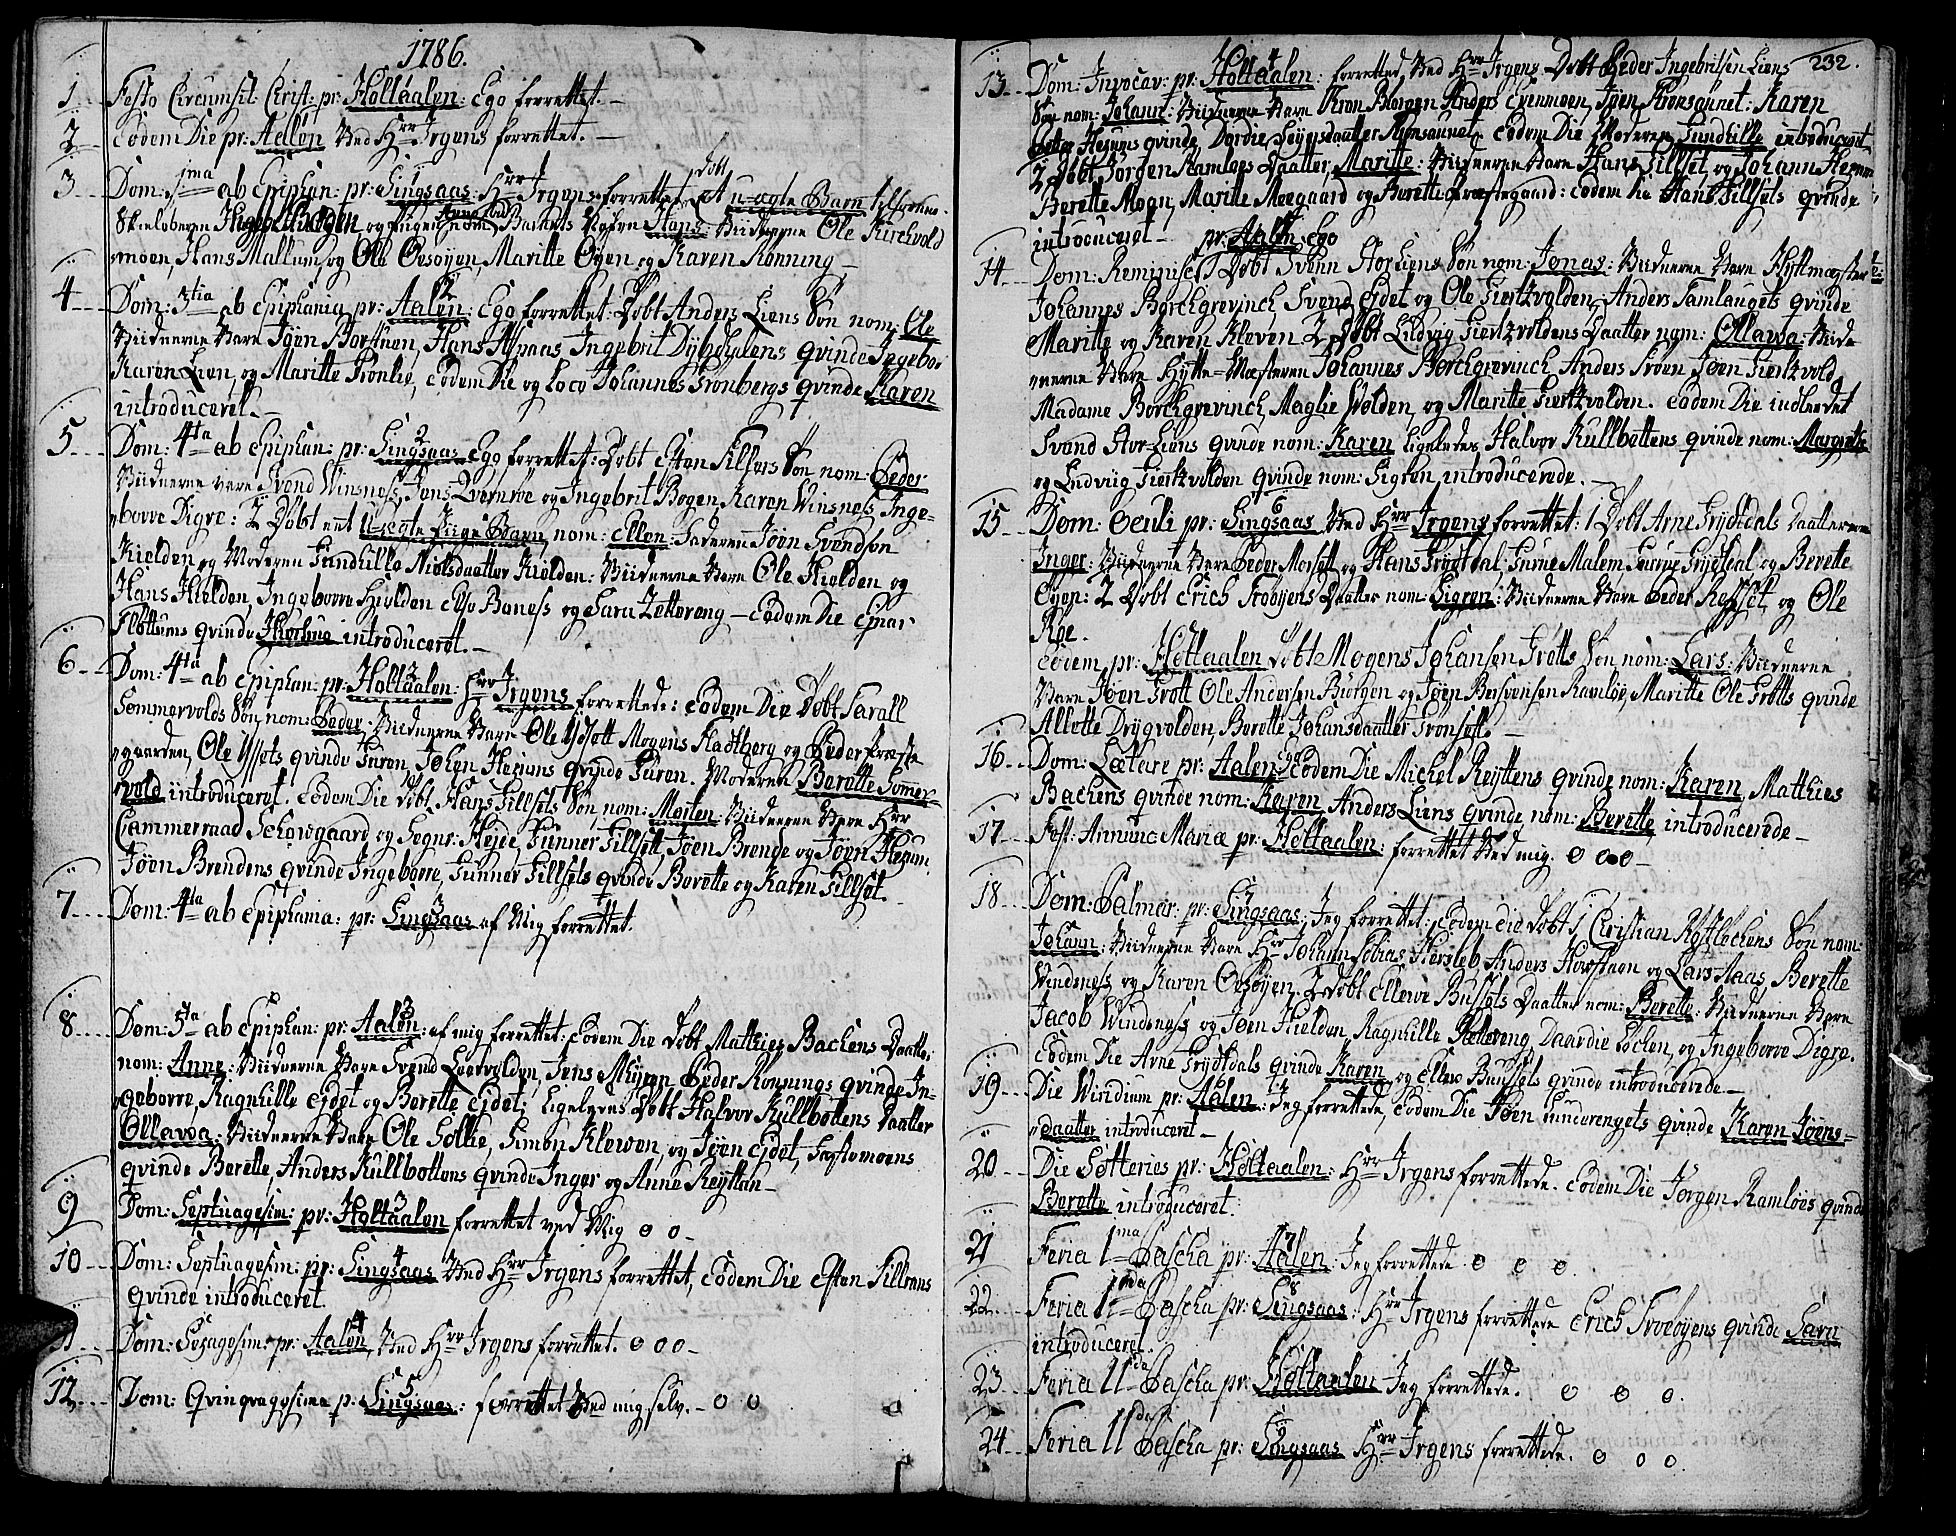 1786.
1 Festo Circumsit: Christ: pr: Holtaalen: Ego forrettet.
2 Eodem Die pr: Aalen Ved Hrr Irgens forrettet.
3 Dom: 1ma ab Epiphan: pr: Singsaas: Hrr Irgens forrettet, Døbt et u-ægte Barn
Barnets Nafn Hans: Vidnerne Ole Kirchvold
moen, Hans Mallum, og Ole Ovsøyen, Maritte Øyen og Karen Rønning
4 Dom: 3tia ab Epiphania pr: Aalen: Ego forrettet: Døbt Anders Liens Søn nom: Ole
Vidnerne Vare Jøen Borstuen, Hans Aspaas, Ingebrit Dybdahlens qvinde Ingebor
Karen Lien, og Maritte Tronlie, Eodem Die og Loco Johannes Grønbergs qvinde Karen
introduceret.
5 Dom: 4ta ab Epiphan: pr: Singsaas Ego forrettet: Døbt Esten Silsers Søn nom: Peder
Vidnerne vare Svend Winsness, Jens Qverneroe og Ingebrit Bogen, Karen Winsness, Inge-
borre Digre: 2 Døbt ett U-ægte Piige Barn, nom: Ellen: Faderen Jøen Svendsøn
Kielden og Moderen Gundhille Nielsdaatter Kielden: Vidnerne Vare Ole Kielden og
Hans Kielden, Ingeborre Kielden Elso Baness og Sara Zettereng - Eodem Die Ejnar
Flottums qvinde introduceret.
6 Dom: 4ta ab Epiphan: pr: Holtaalen: Hrr Irgens forrettede: Eodem Die Døbt Harall
Sommervolds Søn nom: Peder: Vidnerne Vare Ole Mogens Fladtberg og Peder Præste
gaarden, Ole qvinde Guren, Johen Hexums qvinde Guren. Moderen Berette Somer-
vold introduceret. Eodem Die Døbt Hans Gillsets Søn nom: Morten: Vidnerne Vare Hrr
Cammerraad Schowgaard og Segnr: Hejde, Gunner Gillsett, Jøen Brende og Jøen Hexum
Jøen Brendens qvinde Ingeborre, Gunner Gillsets qvinde Berette og Karen Gillset.
7 Dom: 4ta ab Epiphania: pr: Singsaas af Mig forrettet.
8 Dom: 5ta ab Epiphan: pr: Aalen: af mig forrettet: Eodem Die Døbt Mathies Bachens Daatter
nom: Anne: Vidnerne Vare Svend Myren Peder Rønnings qvinde In-
geborre, Ragnhille Ejdet og Berette Ejdet; Ligeledes Døbt Halvor Kullbottens Daatter
Ollawa: Vidnerne Vare Ole Sollie, Simon Klewen, og Jøen Ejdet,
qvinde Berette, Anders Kullbottens qvinde Inger og Anne Reyttan
9 Dom: Septuagesim: pr: Holtaalen forrettet ved Mig o o
10 Dom: Septuagesim: pr: Singsaas Ved Hrr Irgens forrettet, Eodem Die Esten
qvinde introduceret.
11 Dom: Sexagesim: pr: Aalen Ved Hrr Irgens forrettet. o o o
12 Dom: Qvinqvagesima p: Singsaas: forrettet Ved mig selv. o o o
232.
13 Dom: Invocav: pr: Holtaalen: forrettet Ved Hrr Irgens Døbt Peder Ingebritsen Liens
Søn nom: Johann: Vidnerne Vare Anders Evenmoen, Jøen Karen
Hexums qvinde, Eodem Die Moderen Gundhille introduceret
2 Døbt Jørgen Ramløes Daatter, Maritte: Vidnerne Vare Hans Gillset og Johann Hexum
Berette Moan, Maritte Moegaard og Berette Præstegaard: Eodem Die Hans Gillsets qvinde
introduceret - pr: Aalen, Ego
14 Dom: Reminisc: Døbt Svenn Storliens Søn nom: Jonas: Vidnerne Vare Hyttmæster
Johannes Borchgrevinch Svend Ejdet og Ole Giertzvolden, Anders Samlaugets qvinde
Maritte og Karen Kleven 2 Døbt Ludvig Giertzvoldens Daatter nom: Ollawa: Vid
nerne Vare Hytte-Mæsteren Johannes Borchgrevinch Anders Jøen Giertzvold
Madame Borchgrevinch, Maglie Volden, og Maritte Giertzvolden. Eodem Die indleedet
Svend StorLiens qvinde nom: Karen Ligeledes Halvor Kullbottens qvinde nom: Margrete
og Ludviig Giertzvolden qvinde nom: Sigren introducerede.
15 Dom: Oculi pr: Singsaas Ved Hrr Irgens forrettet: 1 Døbt Arne Grydtdals Daatter
Inger: Vidnerne Vare Peder Morset og Hans Grytdal, Gurine Malem Grytdal og Berette
Øyen: 2 Døbt Erich Froøyens Daatter nom: Sigren: Vidnerne Vare Peder og Ole
Røe.
Eodem, pr: Holtaalen Døbt Mogens Johansen Grøtts Søn nom: Lars: Vidnerne
Vare Jøen Grøtt Ole Andersen Burgen og Jøen Ramløe, Maritte Ole Grøtts qvinde
Allette Drygvolden, Berette Johansdaatter Grønsett.
16 Dom: Lætare pr: Aalen: Ego Eodem Die Michel Reyttens qvinde nom: Karen, Matthies
Bachens qvinde nom: Karen Anders Liens qvinde nom: Berette introducerede
17 Fest: Annunc Mariæ pr: Holtaalen: forrettet Ved mig. o o o
18 Dom: Palmar: pr: Singsaas: Jeg forrettet: Eodem die Døbt 1 Christian Søn nom:
Johann: Vidnerne Vare Hrr Johann Tobias Hersleb, Anders og Lars Aaas, Berette
Vindsness og Karen Ovsøyen, 2 Døbt Ellewe Bussets Daatter nom: Berette: Vidnerne Vare
Jacob Windsness og Jøen Kielden, Ragnhille Daardie og Ingeborre Digre.
Eodem Die Arne Grydtdals qvinde Karen og Ellew Bussets qvinde introducerede
19 Die Wiridium pr: Aalen: Jeg forrettede, Eodem Die Jøen qvinde Karen Jøens-
daatter introduceret
20 Die Sotteries pr: Holtaalen: Hrr Irgens forrettede. Eodem Die Jørgen Ramløes qvinde
Berette introduceret.
21 Feria 1ma Pascha pr: Aalen. Jeg forrettede. o o o
22 Feria 1 Pascha pr: Singsaas: Hrr Irgens forrettede Erich Froeøyens qvinde Sara
introduceret.
23 Feria 11da Pascha pr: Holtaalen Jeg forrettede. o o o.
24 Feria 11da Pascha pr: Singsaas Hrr Irgens forrettede. o o o.